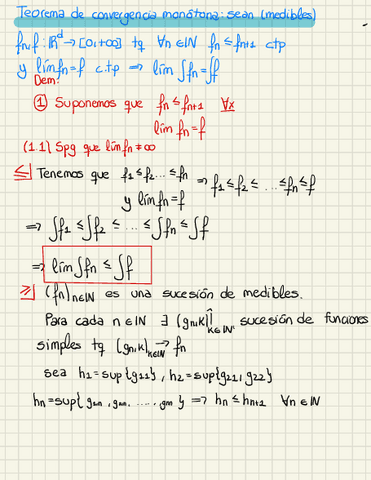 Teorema de convergencia monótona: sean (medibles)
fn, f: ℝᵈ → [0,+∞] tq ∀n∈ℕ fn ≤ fn+1 ctp
y lím fn = f c.tp ⇒ lím ∫fn = ∫f
Dem:
① Suponemos que fn ≤ fn+1 ∀x
lím fn = f
(1.1) Spg que lím fn ≠ ∞
≤| Tenemos que f1 ≤ f2 ... ≤ fn ⇒ f1 ≤ f2 ≤ ... ≤ fn ≤ f
y lím fn = f
⇒ ∫f1 ≤ ∫f2 ≤ ... ≤ ∫fn ≤ ∫f
⇒ lím ∫fn ≤ ∫f
≥| (fn)n∈ℕ es una sucesión de medibles.
Para cada n∈ℕ ∃ (gn,k)↑k∈ℕ, sucesión de funciones
simples tq (gn,k)k∈ℕ → fn
sea h1 = sup{g11}, h2 = sup{g21, g22}
hn = sup{ , ....., } ⇒ hn ≤ hn+1 ∀n∈ℕ